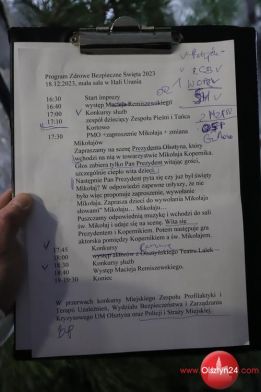 Program Zdrowe Bezpieczne Święta 2023
18.12.2023, mała sala w Hali Urania
16:30 Start imprezy
16:40 występ Macieja Remiszewskiego
17:00 Konkursy służb
17:10 zespół dziecięcy Zespołu Pieśni i Tańca
Kortowo
17:30 PMO +zaproszenie Mikołaja + zmiana
Mikołajów
Zapraszamy na scenę Prezydenta Olsztyna, który
wchodzi na nią w towarzystwie Mikołaja Kopernika.
Głos zabiera tylko Pan Prezydent witając gości,
szczególnie ciepło wita dzieci.
Następnie Pan Prezydent pyta się czy już był święty
Mikołaj? W odpowiedzi zapewne usłyszy, że nie
było więc proponuje zaproszenie, wywołanie
Mikołaja. Zaprasza dzieci do wywołania Mikołaja
słowami" Mikołaju... Mikołaju...
Puszczamy odpowiednią muzykę i wchodzi do sali
św. Mikołaj i udaje się na scenę. Wita się
Prezydentem i Kopernikiem. Potem następuje gra
aktorska pomiędzy Kopernikiem a św. Mikołajem.
17:45 Konkursy
18:00 występ aktorów z Olsztyńskiego Teatru Lalek
18:30 Konkursy służb
18.40 Występ Macieja Remiszewskiego.
19-19:30 Koniec
W przerwach konkursy Miejskiego Zespołu Profilaktyki i
Terapii Uzależnień, Wydziału Bezpieczeństwa i Zarządzania
Kryzysowego UM Olsztyna oraz Policji i Straży Miejskiej.
Olsztyn24.com